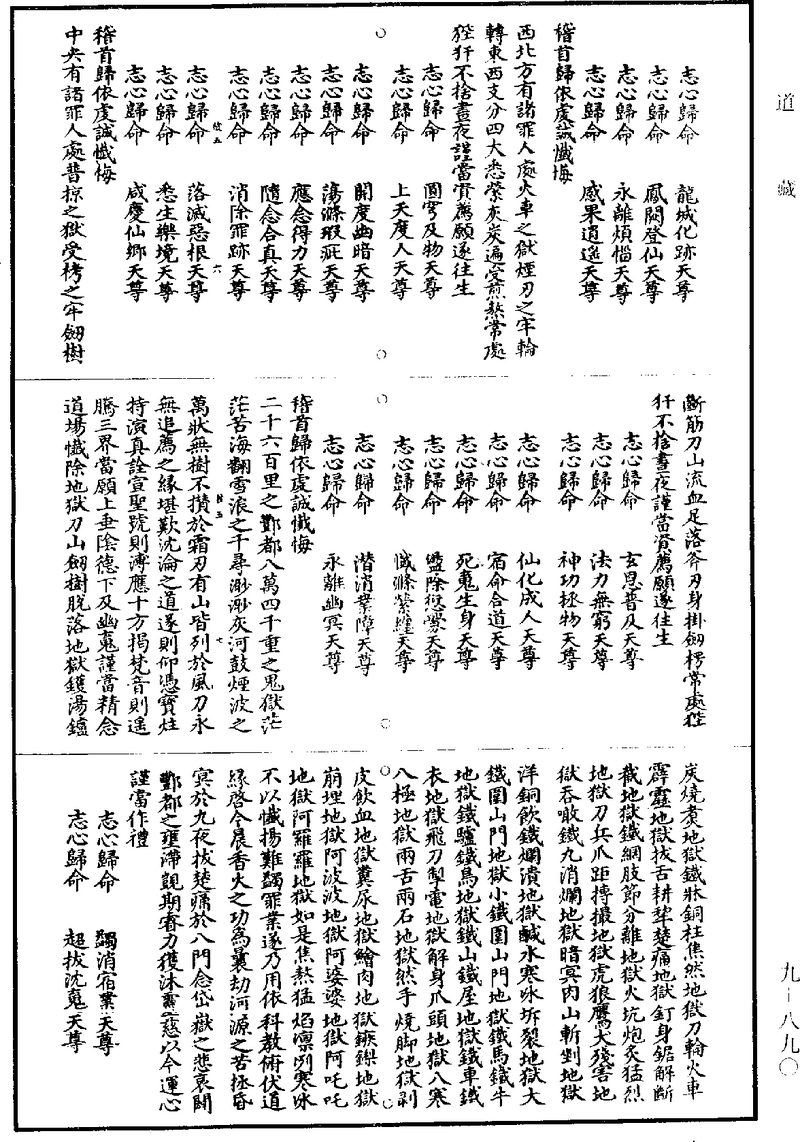 道藏
志心歸命　龍城化跡天尊
志心歸命　鳳闕登仙天尊
志心歸命　永離煩惱天尊
志心歸命　感果逍遙天尊
稽首歸依虔誠懺悔
西北方有諸罪人處火車之獄煙刃之牢輪
轉東西支分四大悉縈灰炭遍受煎熬常處
狴犴不捨晝夜謹當資薦願遂往生
志心歸命　圓穹及物天尊
志心歸命　上天度人天尊
志心歸命　開度幽暗天尊
志心歸命　蕩滌瑕疵天尊
志心歸命　應念得力天尊
志心歸命　隨念合真天尊
志心歸命　消除罪跡天尊
志心歸命　落滅惡根天尊
志心歸命　悉生樂境天尊
志心歸命　咸慶仙鄉天尊
稽首歸依虔誠懺悔
中央有諸罪人處普掠之獄受栲之牢劔樹
斷筋刀山流血足落斧刃身掛劔樗常處狴
犴不捨晝夜謹當資薦願遂往生
志心歸命　玄恩普及天尊
志心歸命　法力無窮天尊
志心歸命　神功拯物天尊
志心歸命　仙化成人天尊
志心歸命　宿命合道天尊
志心歸命　死鬼生身天尊
志心歸命　蠲除愆釁天尊
志心歸命　懺滌縈纏天尊
志心歸命　潛消業障天尊
志心歸命　永離幽冥天尊
稽首歸依虔誠懺悔
二千六百里之酆都八萬四千重之鬼獄茫
茫苦海翻雪浪之千尋渺渺灰河鼓煙波之
萬狀無樹不攢於霜刃有山皆列於風刀永
無追薦之緣堪歎沈淪之道遂則仰憑寶炷
持演真詮宣聖號則溥應十方揭梵音則遙
騰三界當願上垂陰德下及幽冤謹當精念
道場懺除地獄刀山劔樹脫落地獄鑊湯鑪
炭燒煑地獄鐵牀銅柱焦然地獄刀輪火車
霹靂地獄拔舌耕犂楚痛地獄釘身鋸解斷
截地獄鐵網肢節分離地獄火坑炮炙猛烈
地獄刀兵爪距摶撮地獄虎狼鷹犬殘害地
獄吞噉鐵丸消爛地獄暗冥肉山斬剉地獄
洋銅飲鐵爛潰地獄鹹水寒冰坼裂地獄大
鐵圍山門地獄小鐵圍山門地獄鐵馬鐵牛
地獄鐵驢鐵鳥地獄鐵山鐵屋地獄鐵車鐵
衣地獄飛刀掣電地獄解身爪頭地獄八寒
八極地獄兩舌兩石地獄然手燒脚地獄剥
皮飲血地獄糞尿地獄鱠肉地獄鏃鏁地獄
崩埋地獄阿波波地獄阿婆婆地獄阿吒吒
地獄阿羅羅地獄如是焦熬猛焰凛冽寒冰
不以懺揚難蠲罪業遂乃用依科教俯伏道
緣啓今晨香火之功為曩劫河源之苦拯昏
冥於九夜拔楚痛於八門念岱嶽之悲哀閔
酆都之壅滯覬期睿力獲沐靈慈以今運心
謹當作禮
志心歸命　蠲消宿業天尊
志心歸命　超拔沈冤天尊
九—八九〇